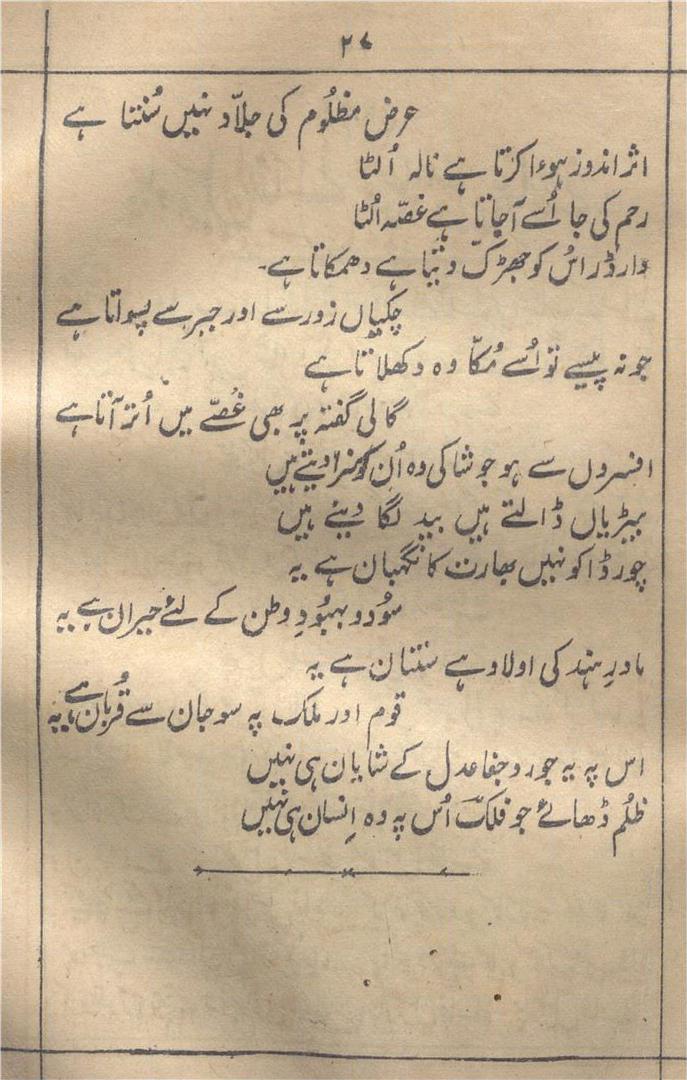 ۲۷
عرض مظلُوم کی جلاّد نہیں سُنتا ہے
اثر اندوز ہوءا کرتا ہے نالہ اُلٹا
رحم کی جا اُسے آجاتا ہے غصّہ اُلٹا
وارڈر اسُ کو جھڑک دیتا ہے دھمکاتا ہے۔
چکیاں زور سے اور جبر سے پسواتا ہے
جو نہ پیسے تو اُسے مُکاّ وہ دکھلاتا ہے
گالی گفتہ پر بھی غُصّے میں اُتر آتا ہے
افسروں سے ہو جو شاکی وہ اُن کو سزا دیتے ہیں
بیڑیاں ڈالتے ہیں بید لگا دیئے ہیں
چور ڈاکو نہیں بھارت کا نگہبان ہے یہ
سوُد و بہبوُدِ وطن کے لئے حیران ہے یہ
مادرِ ہند کی اولاد ہے سنتان ہے یہ
قوم اور ملک پہ سو جان سے قُربان ہے یہ
اس پہ یہ جور و جفا عدل کے شایان ہی نہیں
ظلُم ڈھائے جو فلک اُس پہ وہ اِنسان ہی نہیں